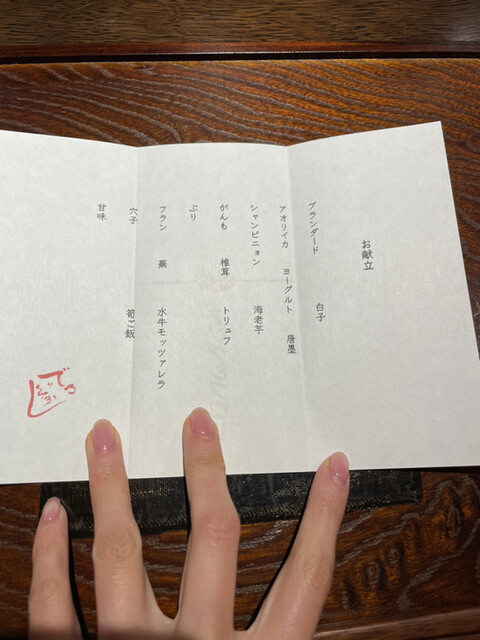 お献立
ブランダード 白子
アオリイカ ヨーグルト 唐墨
シャンピニョン 海老芋
がんも 椎茸 トリュフ
ぶり
フラン 蕪 水牛モッツァレラ
穴子 筍ご飯
甘味